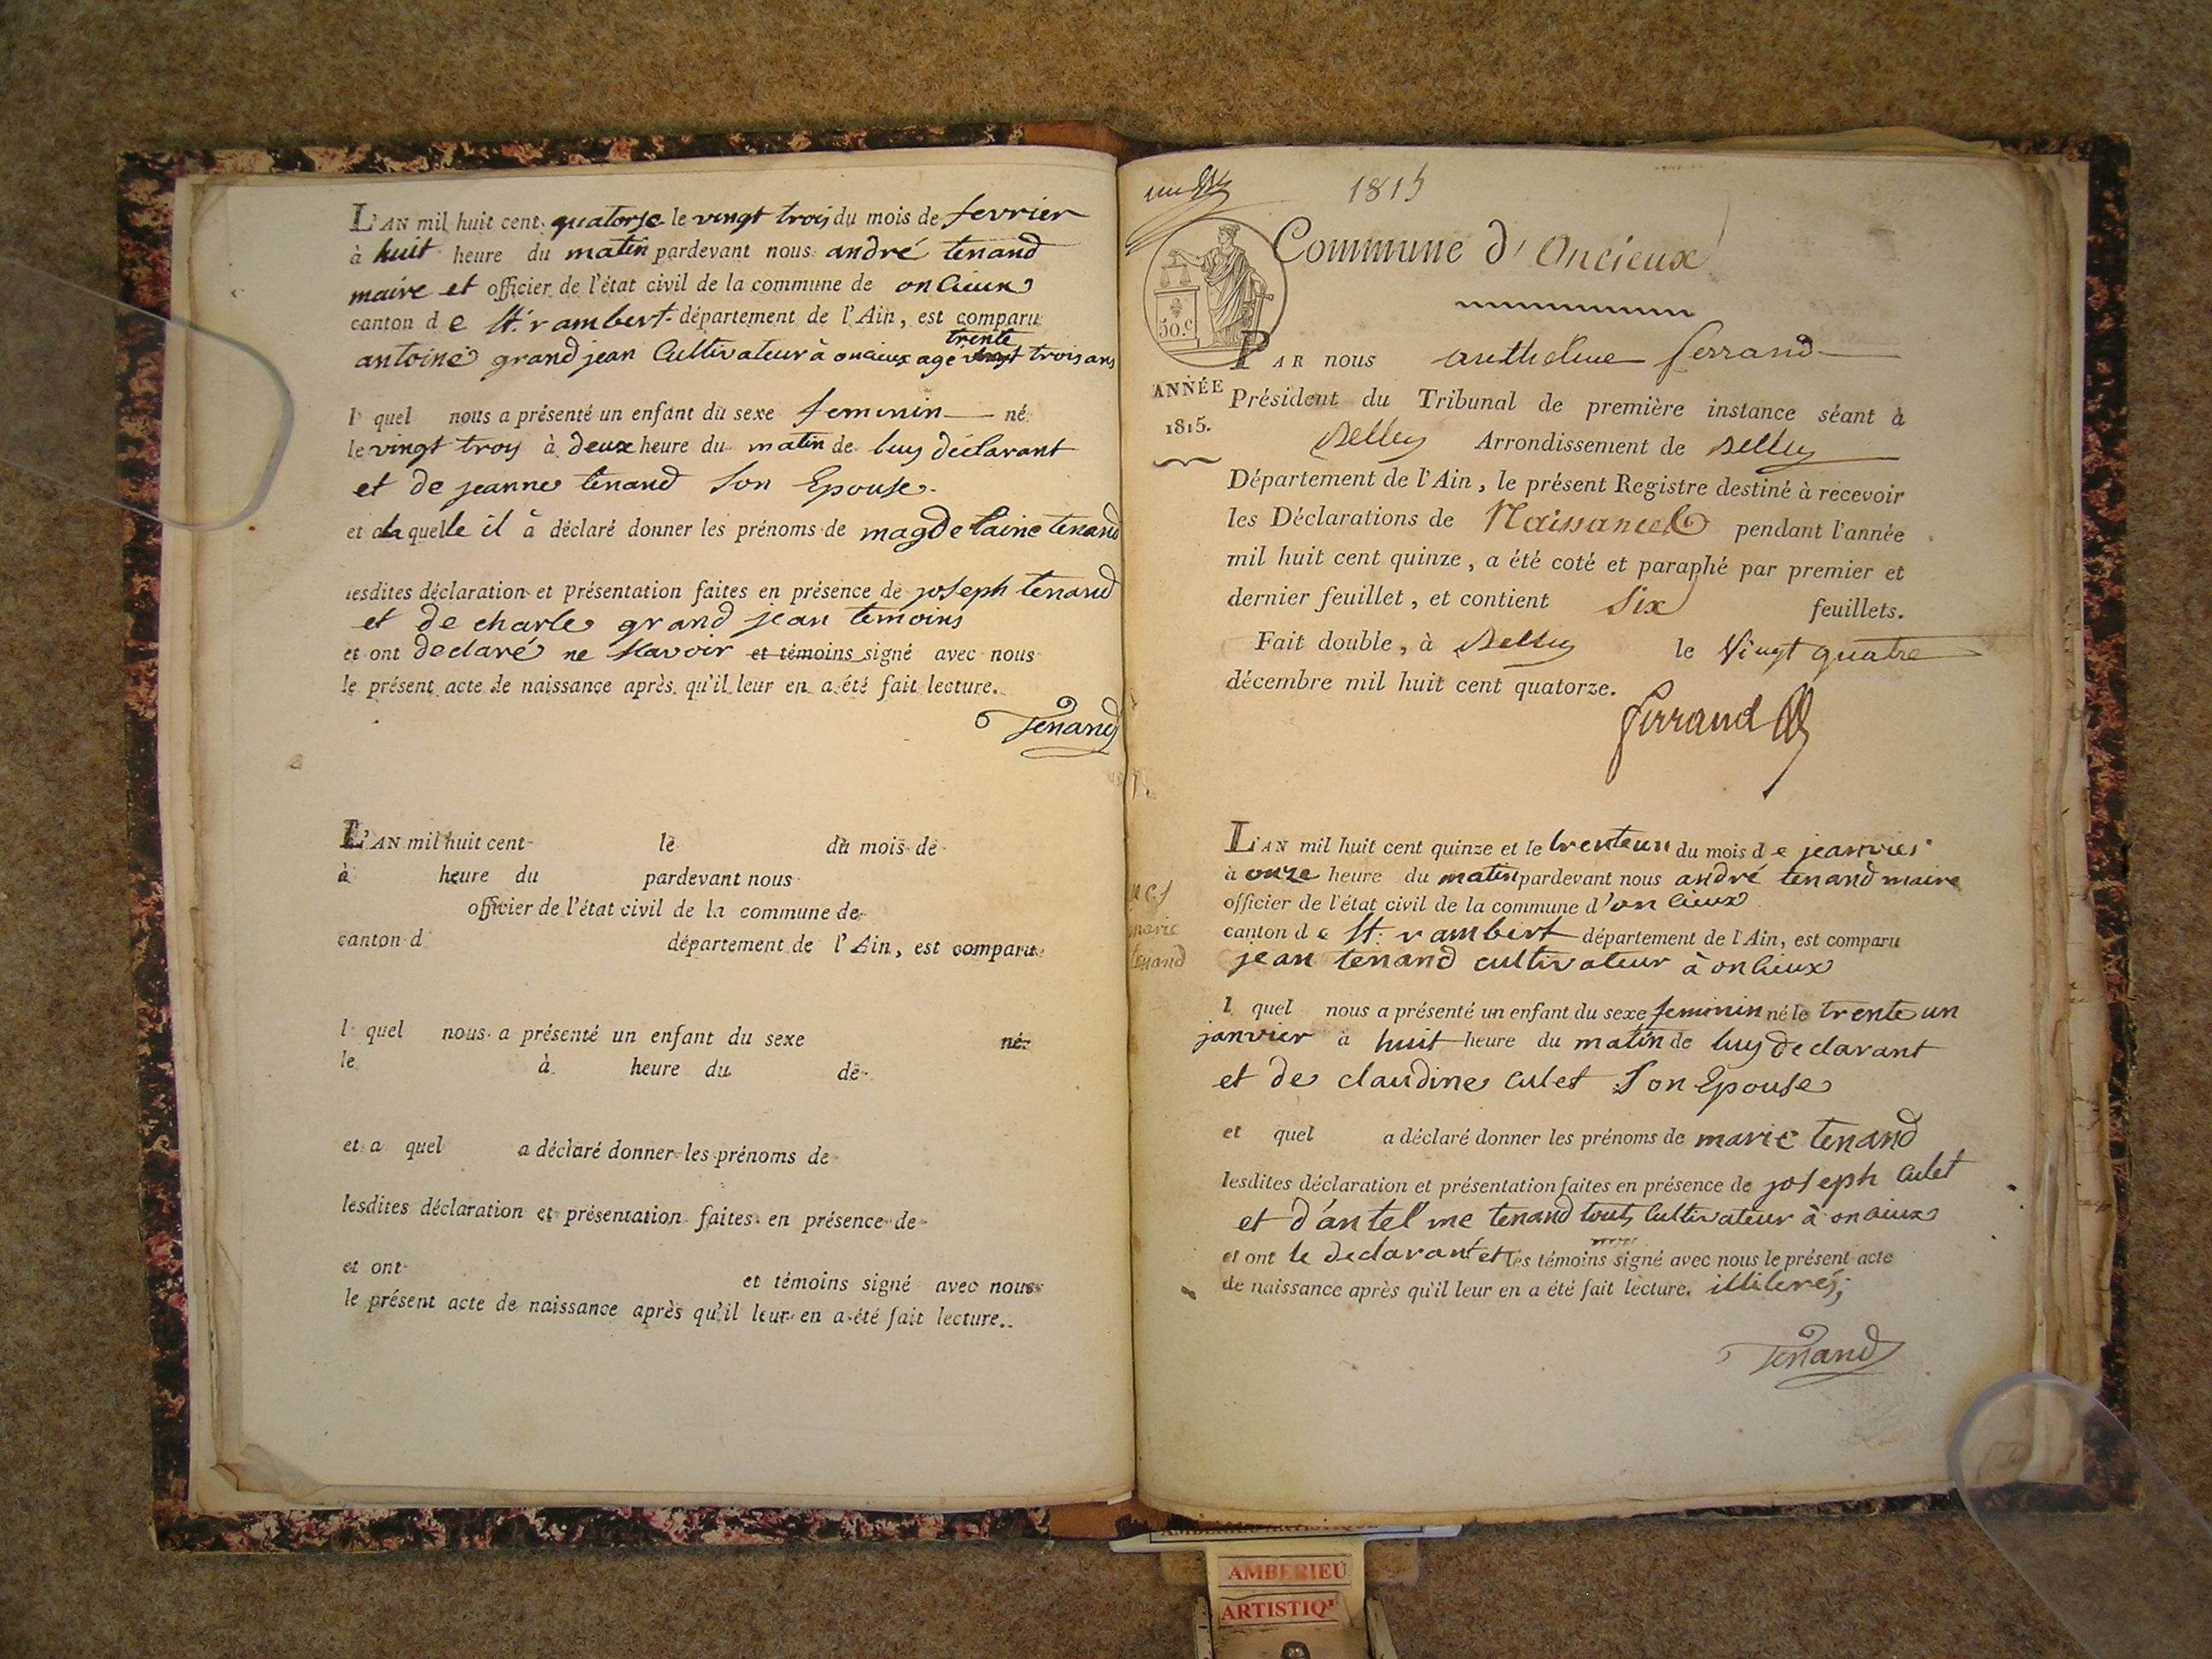 L'AN mil huit cent quatorse le vingt trois du mois de fevrier
à huit heure du matin pardevant nous andré tenand
maire et officier de l'état civil de la commune de oncieux
canton de St. rambert département de l'Ain, est comparu
trente
antoine grand jean Cultivateur à oncieux agé vingt trois ans
l quel nous a présenté un enfant du sexe feminin né
le vingt troy à deux heure du matin de luy déclarant
et de jeanne tenand Son Epouse
et a la quelle il à déclaré donner les prénoms de magdelaine tenand
lesdites déclaration et présentation faites en présence de joseph tenand
et de charle grand jean temoins
et ont declaré ne scavoir et témoins signé avec nous
le présent acte de naissance après qu'il leur en a été fait lecture.
Tenand
L'AN mil huit cent le du mois de
à heure du pardevant nous
officier de l'état civil de la commune de
canton d département de l'Ain, est comparu
l quel nous a présenté un enfant du sexe né
le à heure du de
et a quel a déclaré donner les prénoms de
lesdites déclaration et présentation faites en présence de
et ont et témoins signé avec nous
le présent acte de naissance après qu'il leur en a été fait lecture.
1815
Commune d'Oncieux
50.c
PAR nous anthelme ferrand
ANNÉE
1815.
Président du Tribunal de première instance séant à
Belley Arrondissement de Belley
Département de l'Ain, le présent Registre destiné à recevoir
les Déclarations de Naissances pendant l'année
mil huit cent quinze, a été coté et paraphé par premier et
dernier feuillet, et contient Six feuillets.
Fait double, à Belley le Vingt quatre
décembre mil huit cent quatorze.
ferrand
L'AN mil huit cent quinze et le trente un du mois de jeanvier
à onze heure du matin pardevant nous andré tenand maire
officier de l'état civil de la commune d'oncieux
canton de St. rambert département de l'Ain, est comparu
jean tenand cultivateur à oncieux
marie
tenand
l quel nous a présenté un enfant du sexe feminin né le trente un
janvier à huit heure du matin de luy declarant
et de claudine culet Son Epouse
et quel a déclaré donner les prénoms de marie tenand
lesdites déclaration et présentation faites en présence de joseph culet
et d'antelme tenand touts cultivateur à oncieux
et ont le declarant et les témoins signé avec nous le présent acte
de naissance après qu'il leur en a été fait lecture. illiterés;
Tenand
AMBERIEU
ARTISTIQ